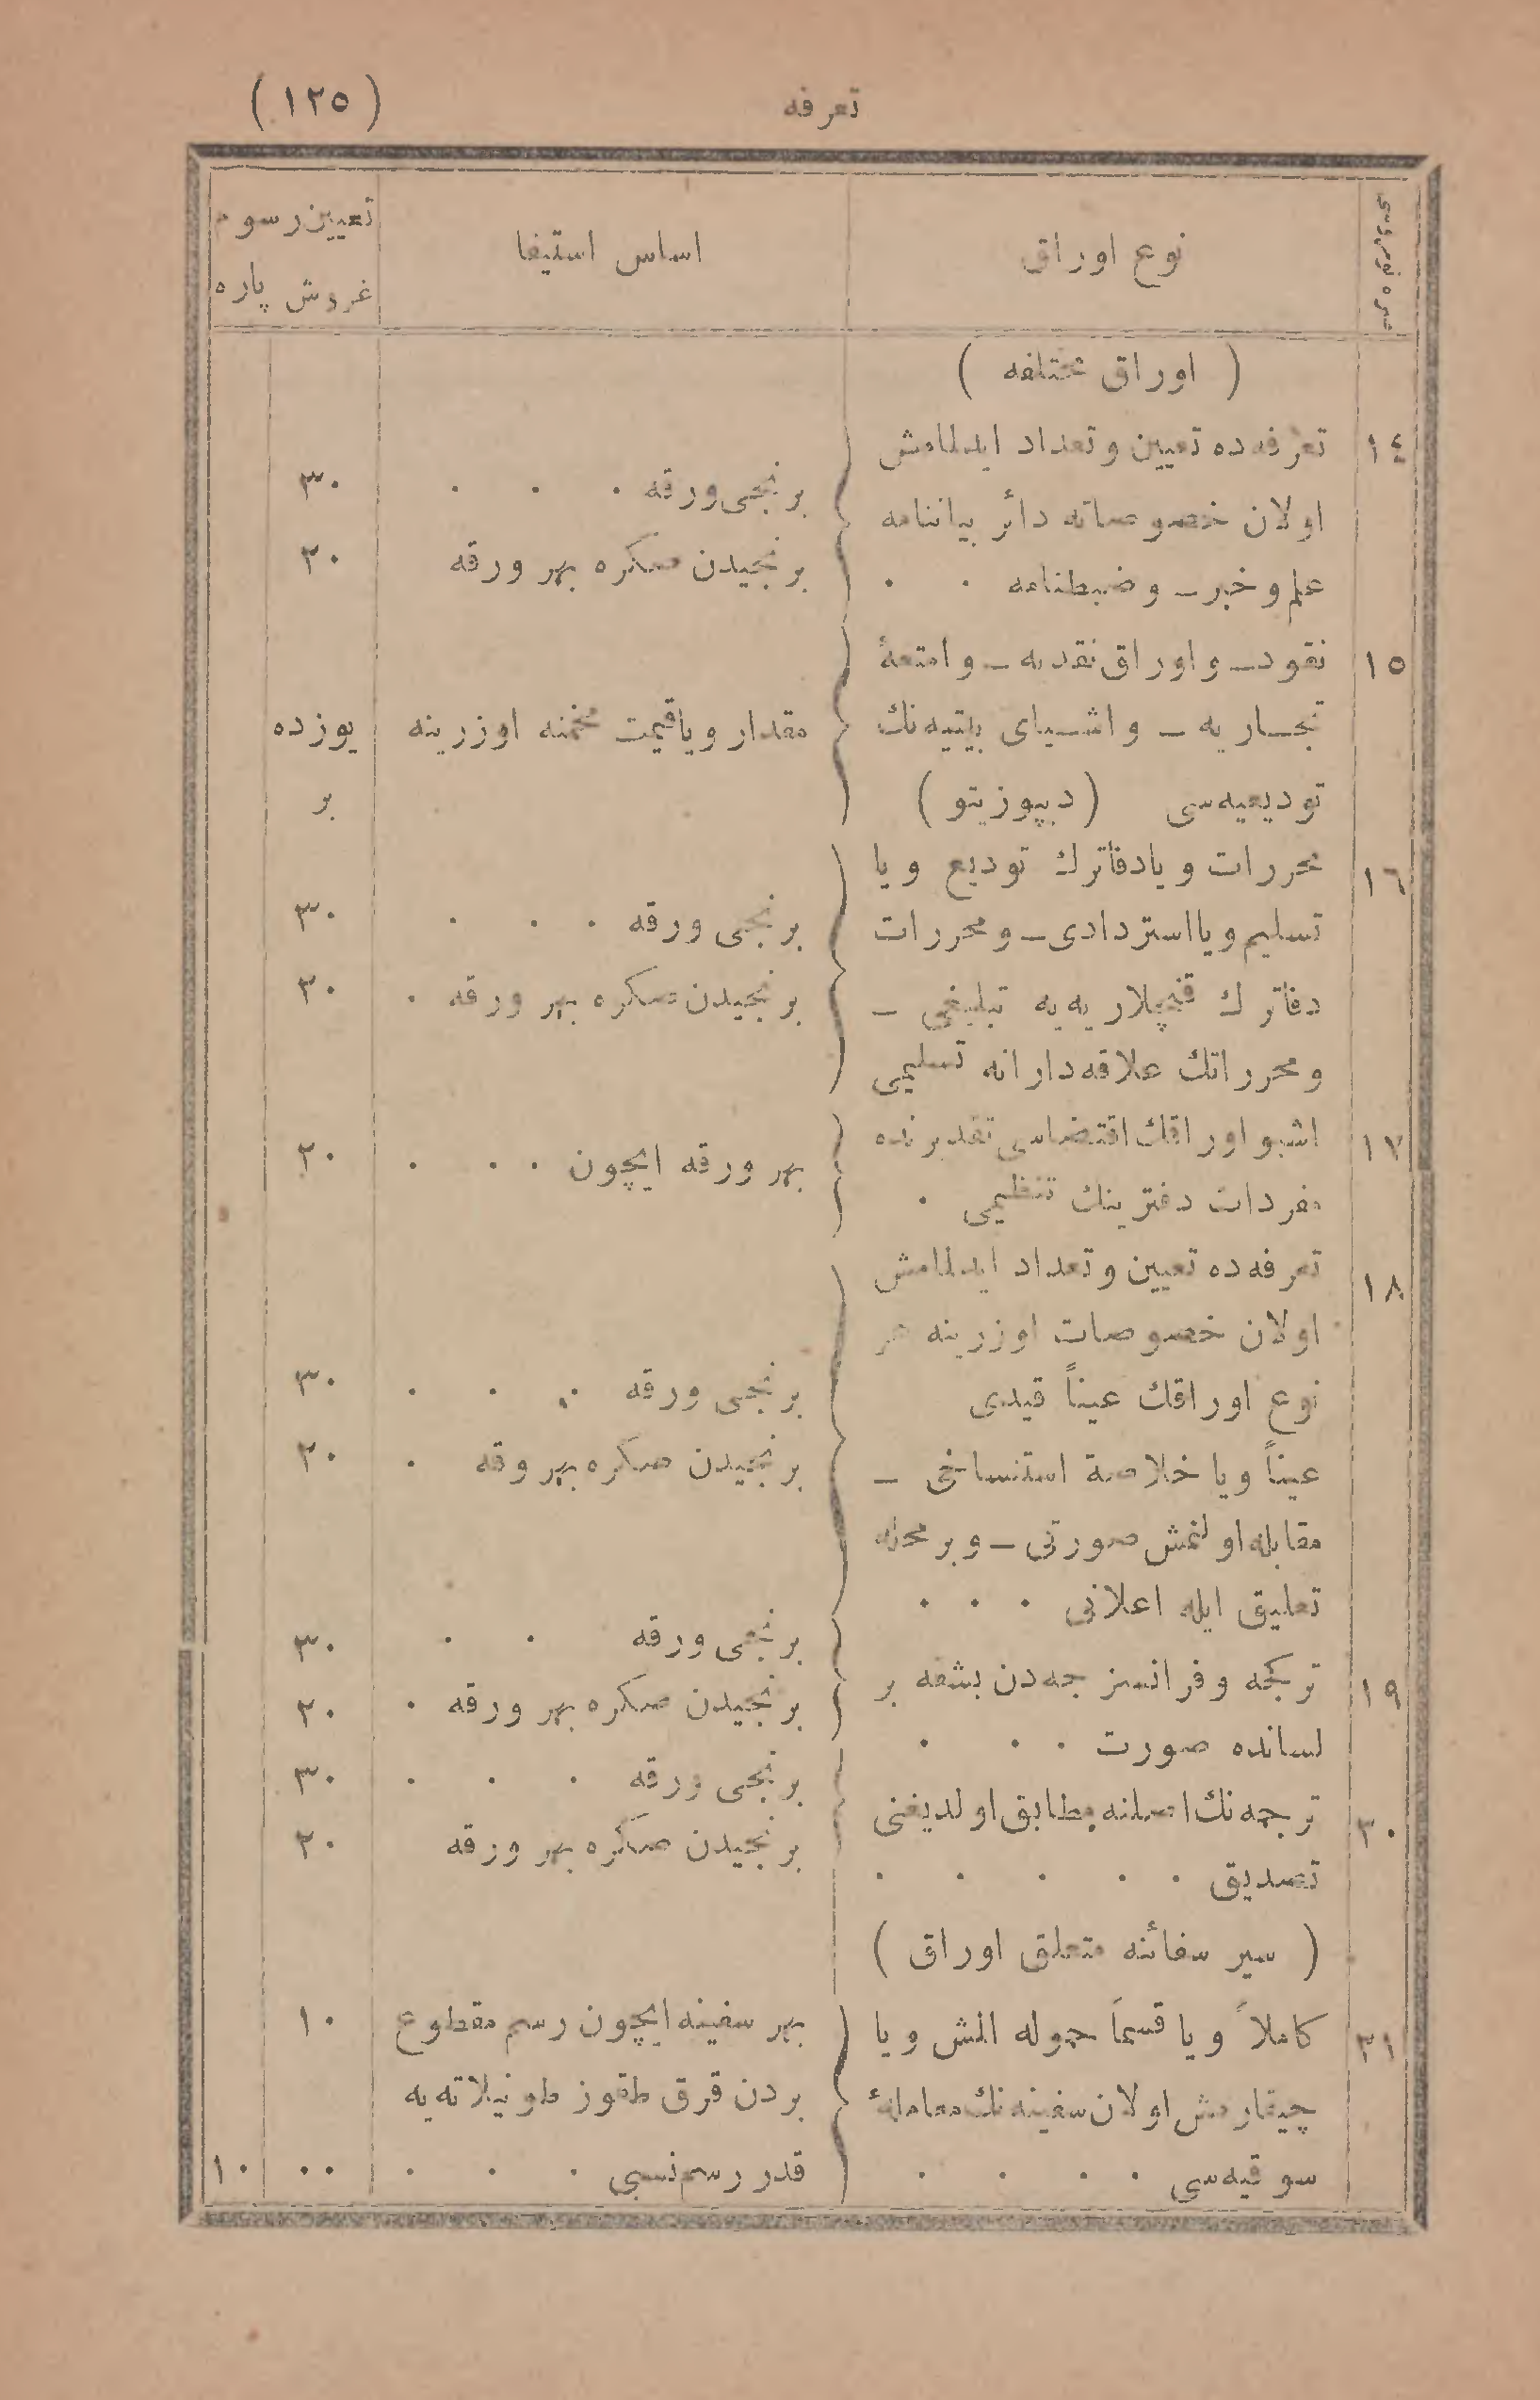 تعرفه (١٢٥)
نوع اوراق
اساس استيفا
تعيين رسوم
غروش پاره
( اوراق مختلفه )
١٤ تعرفه‌ده تعيين و تعداد ايدلمامش
اولان خصوصاته دائر بياننامه
علم و خبر ــ و ضبطنامه
برنجى ورقه ٣٠
برنجيدن صكره بهر ورقه ٢٠
١٥ نقود ــ و اوراق نقديه ــ و امتعهٔ
تجاريه ــ و اشياى بيتيه‌نك
توديعيه‌سى (ديپوزيتو)
مقدار ويا قيمت مخمنه اوزرينه يوزده
بر
١٦ محررات ويا دفاترك توديع ويا
تسليم ويا استردادى ــ و محررات
دفاترك قنچلاريه‌يه تبليغى ــ
و محرراتك علاقه‌دارانه تسليمى
برنجى ورقه ٣٠
برنجيدن صكره بهر ورقه ٢٠
١٧ اشبو اوراقك اقتضاسى تقديرنده
مفردات دفترينك تنظيمى
بهر ورقه ايچون ٢٠
١٨ تعرفه‌ده تعيين و تعداد ايدلمامش
اولان خصوصات اوزرينه هر
نوع اوراقك عيناً قيدى
عيناً ويا خلاصة استنساخى ــ
مقابله اولنمش صورتى ــ و بر محله
تعليق ايله اعلانى
برنجى ورقه ٣٠
برنجيدن صكره بهر وقه ٢٠
١٩ تركجه و فرانسزجه‌دن بشقه بر
لسانده صورت
برنجى ورقه ٣٠
برنجيدن صكره بهر ورقه ٢٠
٢٠ ترجمه‌نك اصلنه مطابق اولديغنى
تصديق
برنجى ورقه ٣٠
برنجيدن صكره بهر ورقه ٢٠
( سير سفائنه متعلق اوراق )
٢١ كاملاً ويا قسماً حموله المش ويا
چيقارمش اولان سفينه‌نك معاملهٔ
سوقيه‌سى
بهر سفينه ايچون رسم مقطوع ١٠
بردن قرق طقوز طونيلاته‌يه
قدر رسم نسبى ٠٠ ١٠